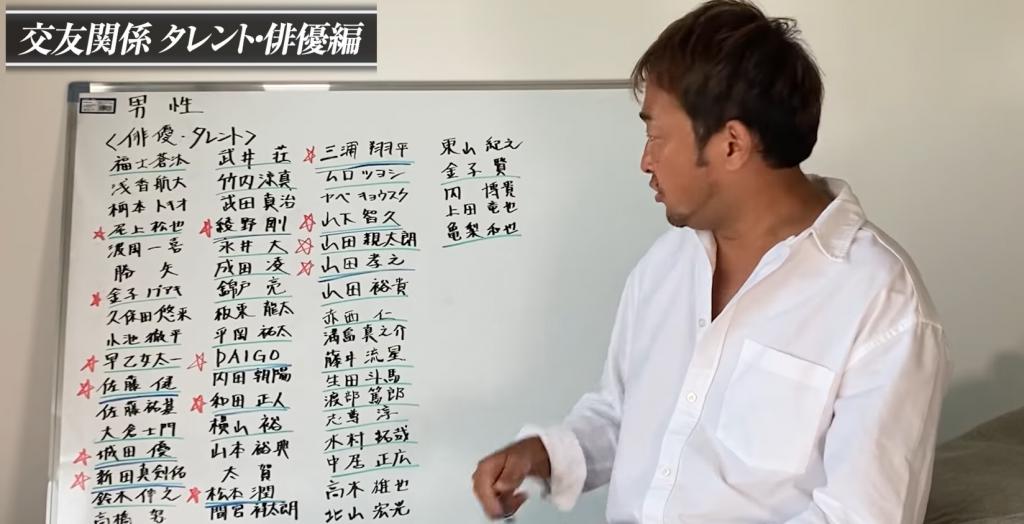 交友関係 タレント・俳優編
男性
<俳優・タレント>
福士蒼汰
浅香航大
柄本トキオ
☆尾上松也
濱岡一喜
勝矢
☆金子ノブアキ
久保田悠来
小池徹平
☆早乙女太一
☆佐藤健
佐藤祐基
大倉士門
☆城田優
☆新田真剣佑
鈴木伸之
高橋
武井荘
竹内涼真
武田真治
☆綾野剛
永井大
成田凌
錦戸亮
板東龍太
平岡祐太
☆DAIGO
内田朝陽
☆和田正人
横山裕
山本裕典
太賀
☆松本潤
間宮祥太朗
☆三浦翔平
ムロツヨシ
ヤベキョウスケ
☆山下智久
☆山田親太朗
☆山田孝之
山田裕貴
赤西仁
満島真之介
藤井流星
生田斗馬
渡部篤郎
志尊淳
木村拓哉
中居正広
高木雄也
北山宏光
東山紀之
金子賢
内博貴
上田竜也
亀梨和也